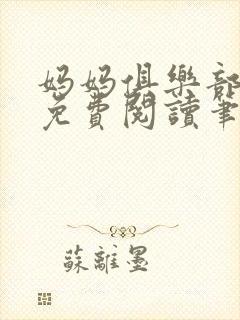 妈妈俱樂部
免費閱讀筆
蘇離墨